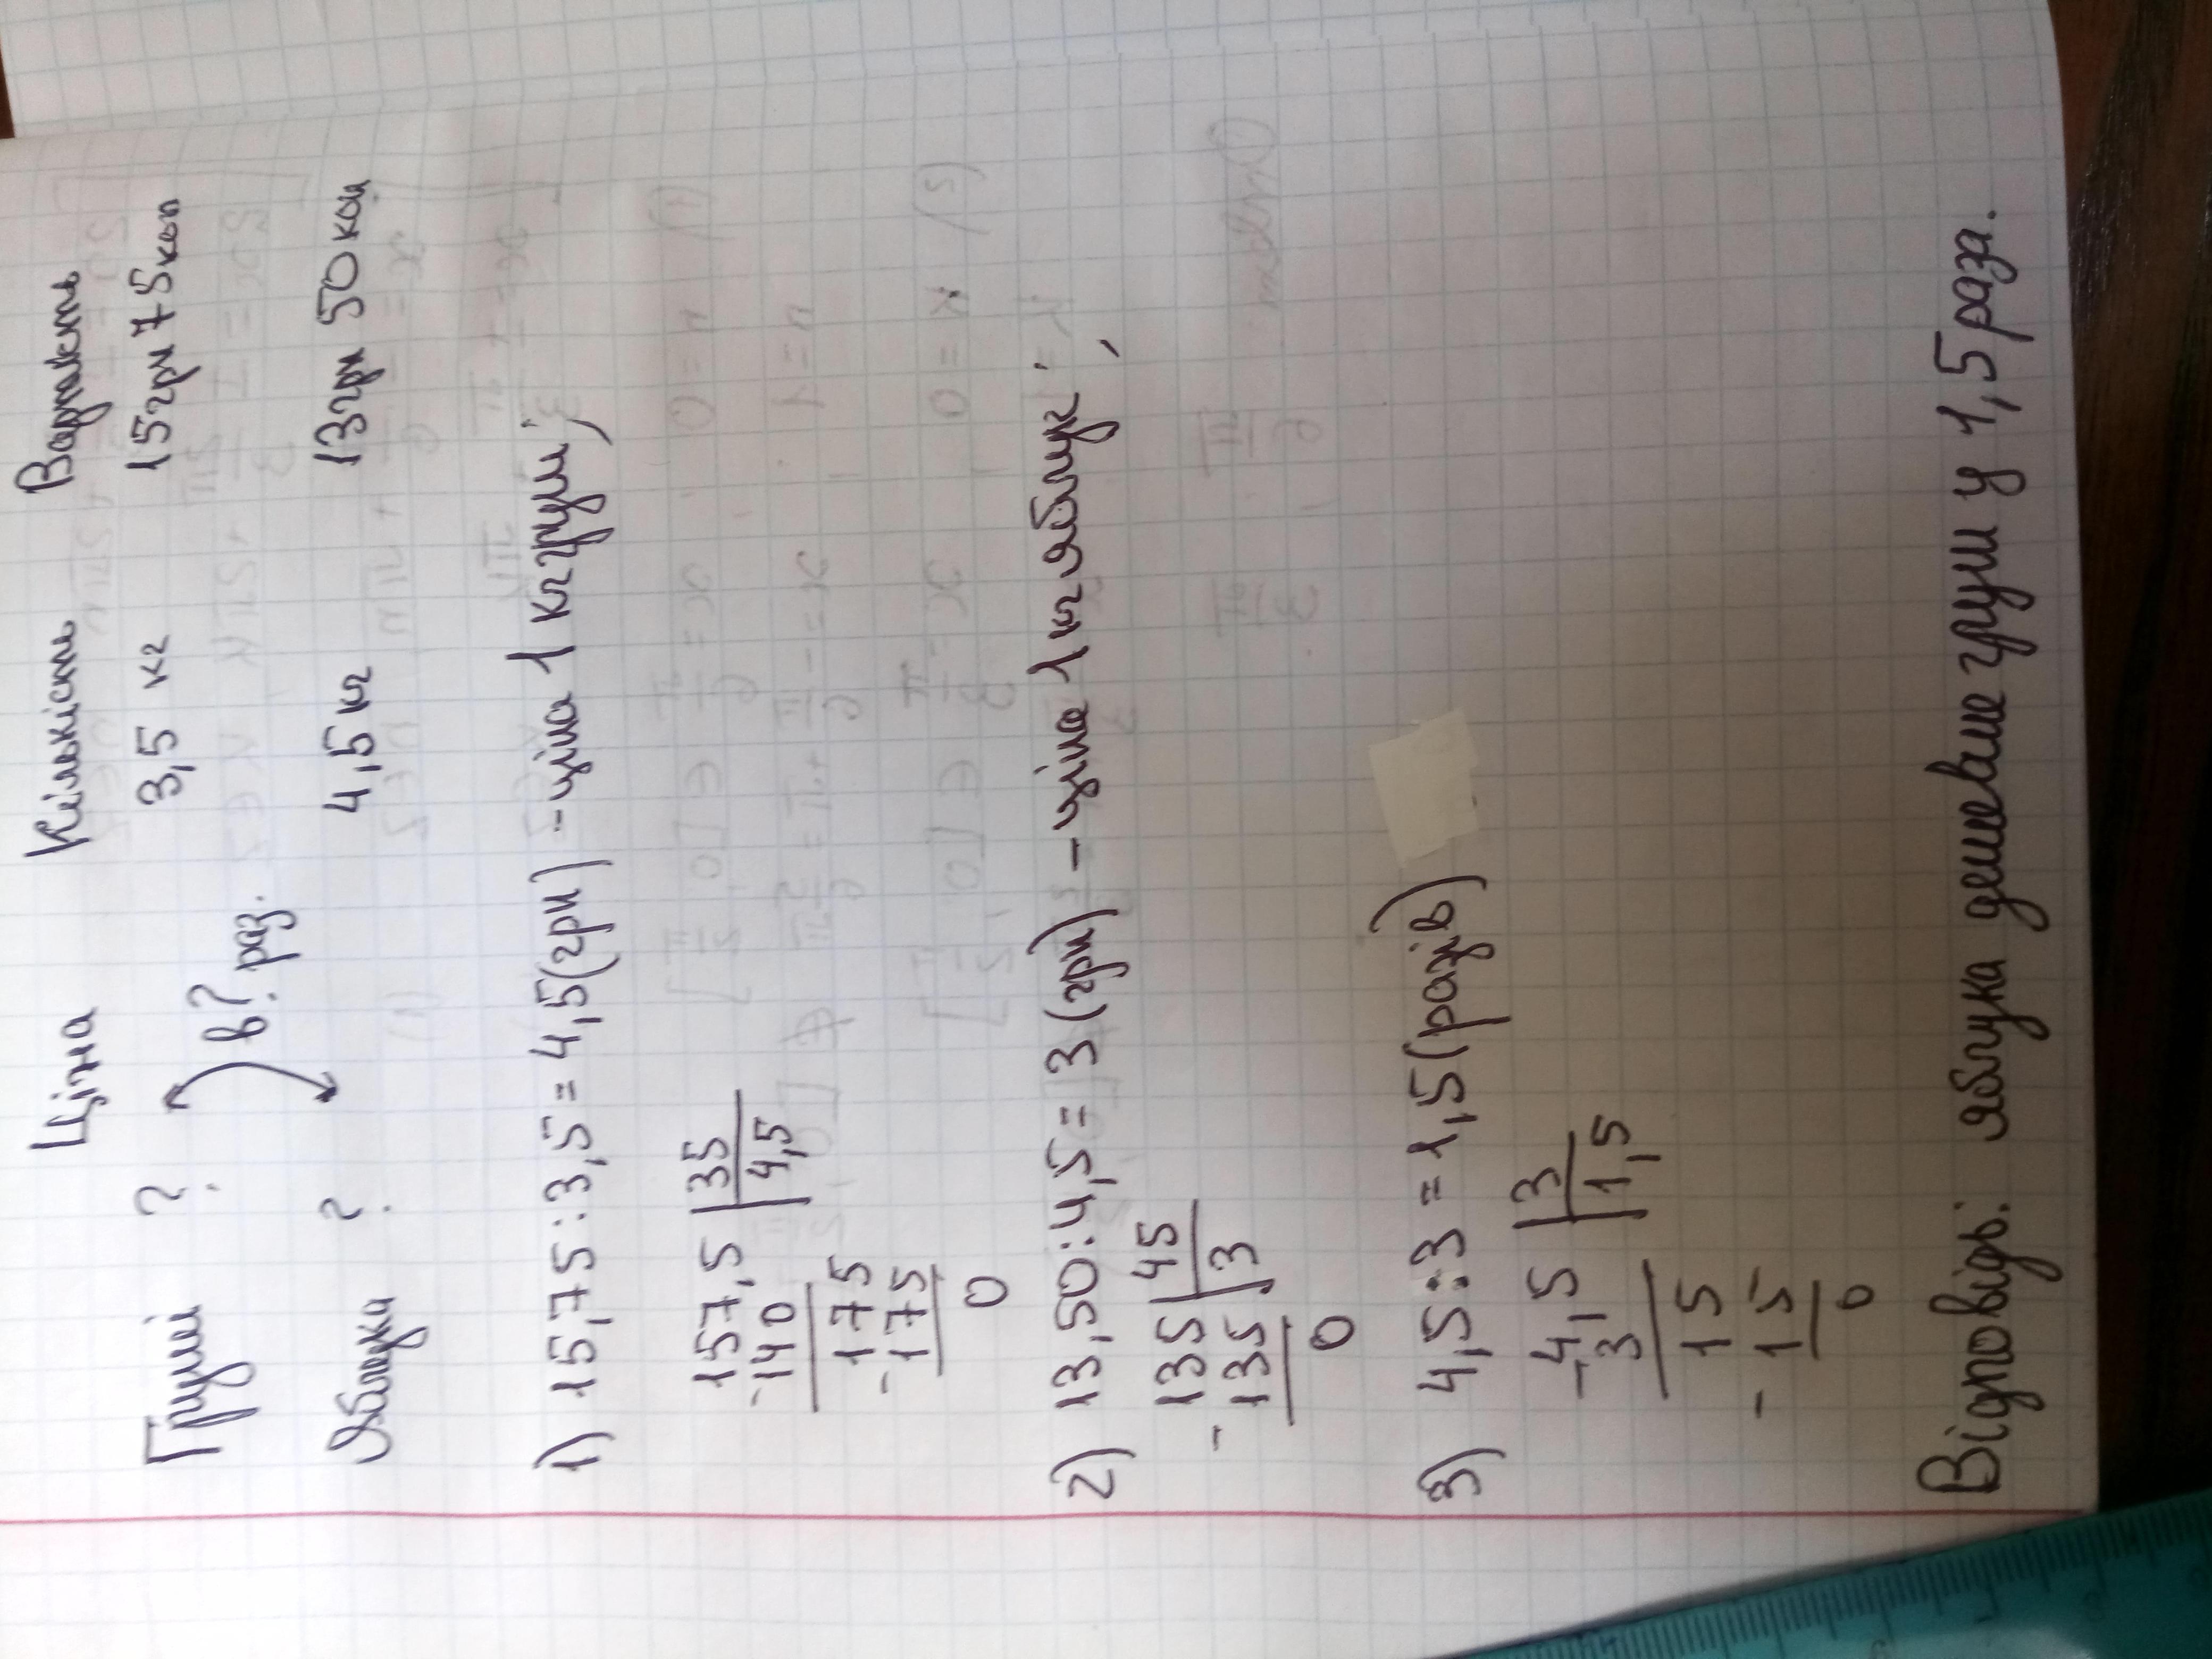 Ціна Кількість Вартість
Груші ? 3,5 кг 15грн 75коп
в? раз.
Яблука ? 4,5 кг 13грн 50 коп
1) 15,75:3,5 = 4,5(грн) - ціна 1 кг груш;
157,5 | 35
-140 | 4,5
175
-175
0
2) 13,50:4,5 = 3 (грн) - ціна 1 кг яблук;
135 | 45
-135 | 3
0
3) 4,5:3 = 1,5 (разів)
-4,5 | 3
3 | 1,5
15
-15
0
Відповідь: яблука дешевше груш у 1,5 раза.